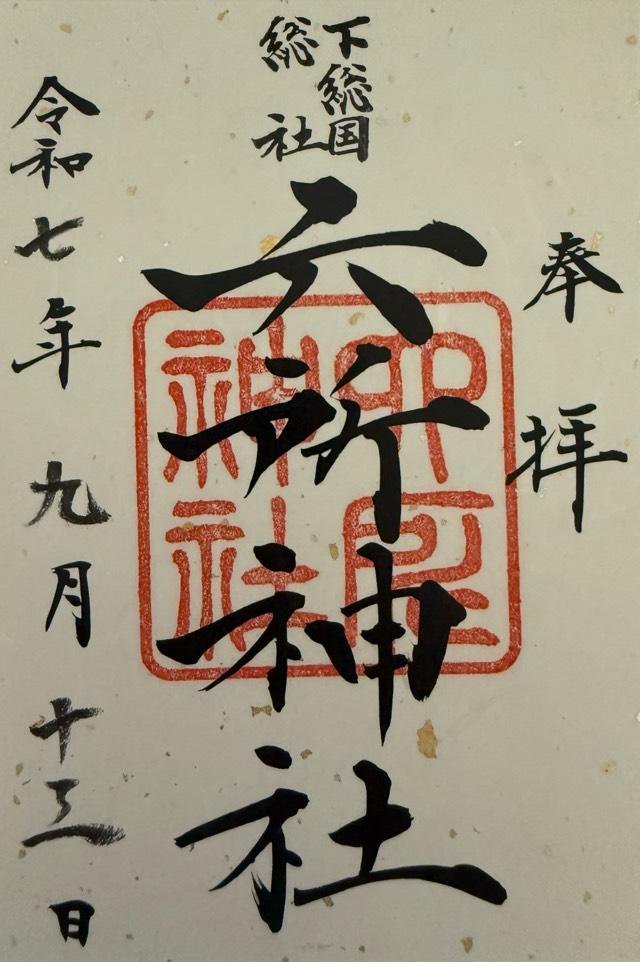 奉拝
下総国
総社
六所神社
令和七年九月十三日
神社